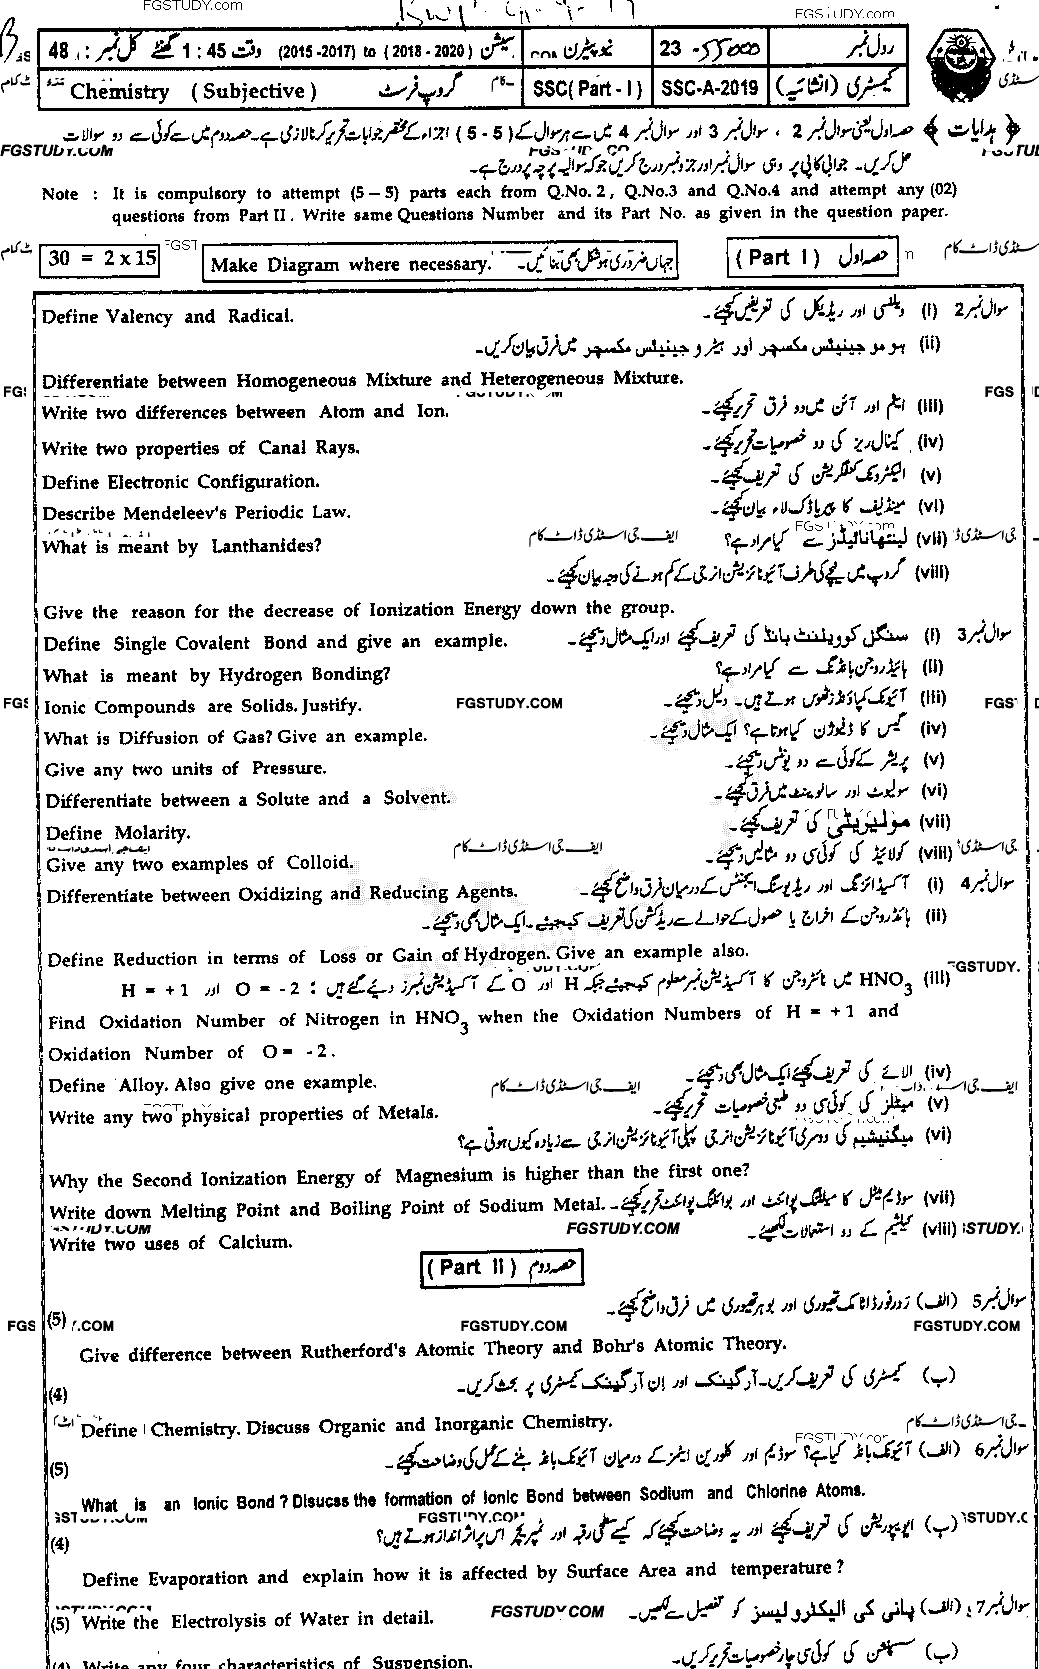 FGSTUDY.com
FGSTUDY.com
رول نمبر 23 -55000 نیو پیٹرن سیشن (2015 -2017) to (2018 - 2020) وقت 1 : 45 گھنٹے کل نمبر : 48
کیمسٹری (انشائیہ) SSC-A-2019 SSC(Part - I) گروپ فرسٹ Chemistry (Subjective)
﴿ ہدایات ﴾ حصہ اول یعنی سوال نمبر 2 ، سوال نمبر 3 اور سوال نمبر 4 میں سے ہر سوال کے (5 - 5) اجزاء کے مختصر جوابات تحریر کرنا لازمی ہے۔ حصہ دوم میں سے کوئی سے دو سوالات
FGSTUDY.COM
حل کریں۔ جوابی کاپی پر وہی سوال نمبر اور جزو نمبر درج کریں جو کہ سوالیہ پرچہ پر درج ہے۔
Note : It is compulsory to attempt (5 – 5) parts each from Q.No. 2 , Q.No.3 and Q.No.4 and attempt any (02)
questions from Part II . Write same Questions Number and its Part No. as given in the question paper.
30 = 2 x 15 Make Diagram where necessary. جہاں ضروری ہو شکل بھی بنائیں۔ (Part I) حصہ اول
Define Valency and Radical. سوال نمبر 2 (i) ویلنسی اور ریڈیکل کی تعریف کیجئے۔
(ii) ہومو جینیئس مکسچر اور ہیٹرو جینیئس مکسچر میں فرق بیان کریں۔
Differentiate between Homogeneous Mixture and Heterogeneous Mixture.
Write two differences between Atom and Ion. (iii) ایٹم اور آئن میں دو فرق تحریر کیجئے۔
Write two properties of Canal Rays. (iv) کینال ریز کی دو خصوصیات تحریر کیجئے۔
Define Electronic Configuration. (v) الیکٹرونک کنفگریشن کی تعریف کیجئے۔
Describe Mendeleev's Periodic Law. (vi) مینڈلیف کا پیریاڈک لاء بیان کیجئے۔
What is meant by Lanthanides? (vii) لینتھانائیڈز سے کیا مراد ہے؟
ایف جی اسٹڈی ڈاٹ کام
(viii) گروپ میں نیچے کی طرف آئیونائزیشن انرجی کے کم ہونے کی وجہ بیان کیجئے۔
Give the reason for the decrease of Ionization Energy down the group.
Define Single Covalent Bond and give an example. سوال نمبر 3 (i) سنگل کوویلنٹ بانڈ کی تعریف کیجئے اور ایک مثال دیجئے۔
What is meant by Hydrogen Bonding? (ii) ہائیڈروجن بانڈنگ سے کیا مراد ہے؟
Ionic Compounds are Solids. Justify. FGSTUDY.COM (iii) آئیونک کمپاؤنڈز ٹھوس ہوتے ہیں۔ دلیل دیجئے۔
What is Diffusion of Gas? Give an example. (iv) گیس کا ڈفیوژن کیا ہوتا ہے؟ ایک مثال دیجئے۔
Give any two units of Pressure. (v) پریشر کے کوئی سے دو یونٹس دیجئے۔
Differentiate between a Solute and a Solvent. (vi) سولیوٹ اور سالوینٹ میں فرق کیجئے۔
Define Molarity. (vii) مولیریٹی کی تعریف کیجئے۔
Give any two examples of Colloid. ایف جی اسٹڈی ڈاٹ کام (viii) کولائیڈ کی کوئی سی دو مثالیں دیجئے۔
Differentiate between Oxidizing and Reducing Agents. سوال نمبر 4 (i) آکسیڈائزنگ اور ریڈیوسنگ ایجنٹس کے درمیان فرق واضح کیجئے۔
(ii) ہائڈروجن کے اخراج یا حصول کے حوالے سے ریڈکشن کی تعریف کیجیئے۔ ایک مثال بھی دیجئے۔
Define Reduction in terms of Loss or Gain of Hydrogen. Give an example also.
(iii) HNO3 میں نائٹروجن کا آکسیڈیشن نمبر معلوم کیجیئے جبکہ H اور O کے آکسیڈیشن نمبرز دیئے گئے ہیں : O = -2 اور H = +1
Find Oxidation Number of Nitrogen in HNO3 when the Oxidation Numbers of H = +1 and
Oxidation Number of O = -2 .
Define Alloy. Also give one example. (iv) الائے کی تعریف کیجئے ایک مثال بھی دیجئے۔
ایف جی اسٹڈی ڈاٹ کام
Write any two physical properties of Metals. (v) میٹلز کی کوئی سی دو طبعی خصوصیات تحریر کیجئے۔
(vi) میگنیشیم کی دوسری آئیونائزیشن انرجی پہلی آئیونائزیشن انرجی سے زیادہ کیوں ہوتی ہے؟
Why the Second Ionization Energy of Magnesium is higher than the first one?
Write down Melting Point and Boiling Point of Sodium Metal. (vii) سوڈیم میٹل کا میلٹنگ پوائنٹ اور بوائلنگ پوائنٹ تحریر کیجئے۔
FGSTUDY.COM
Write two uses of Calcium. (viii) کیلشیم کے دو استعمالات لکھیئے۔
(Part II) حصہ دوم
(5) سوال نمبر 5 (الف) ردرفورڈ اٹامک تھیوری اور بوہر تھیوری میں فرق واضح کیجئے۔
FGSTUDY.COM FGSTUDY.COM
Give difference between Rutherford's Atomic Theory and Bohr's Atomic Theory.
(4) (ب) کیمسٹری کی تعریف کریں۔ آرگینک اور ان آرگینک کیمسٹری پر بحث کریں۔
Define Chemistry. Discuss Organic and Inorganic Chemistry.
(5) سوال نمبر 6 (الف) آئیونک بانڈ کیا ہے؟ سوڈیم اور کلورین ایٹمز کے درمیان آئیونک بانڈ بننے کے عمل کی وضاحت کیجئے۔
What is an Ionic Bond ? Disucss the formation of Ionic Bond between Sodium and Chlorine Atoms.
FGSTUDY.COM
(4) (ب) ایوپوریشن کی تعریف کیجئے اور یہ وضاحت کیجئے کہ کیسے سطحی رقبہ اور ٹمپریچر اس پر اثر انداز ہوتے ہیں؟
Define Evaporation and explain how it is affected by Surface Area and temperature ?
(5) Write the Electrolysis of Water in detail. FGSTUDY.COM سوال نمبر 7 (الف) پانی کی الیکٹرولیسز کو تفصیل سے لکھیں۔
(4) Write any four characteristics of Suspension. (ب) سسپنشن کی کوئی سی چار خصوصیات تحریر کریں۔